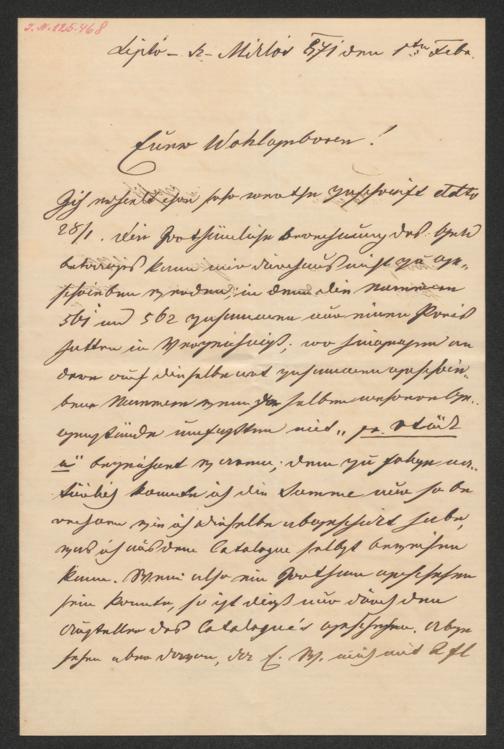 J.N. 125.468
Liptó - St - Miklós 5/71 den 1ten Febr.
Euer Wohlgeboren!
Ich erhielt Ihre sehr werthe Zuschrift ddto
28/1. Die irrthümliche Berechnung des Geld
betrages kann mir durchaus nicht zu ge-
schrieben werden, in dem die Nummern
561 und 562 zusammen nur einen Preis
hatten im Verzeichniß; wo hingegen an
dere auf dieselbe Art zusammen geschrie-
bene Nummern wenn dieselben mehrere Ge-
genstände umfaßten mit „pr. Stück
" bezeichnet waren; dem zu Folge na-
türlich konnte ich die Summe nur so be
rechnen wie ich dieselbe abgeschickt habe,
was ich aus dem Cataloge selbst beweisen
kann. Wenn also ein Irrthum geschehen
sein konnte, so ist dieß nur durch den
Aussteller des Catalogue's geschehen. Abge
sehen aber davon, das E. W. mich mit 2 fl